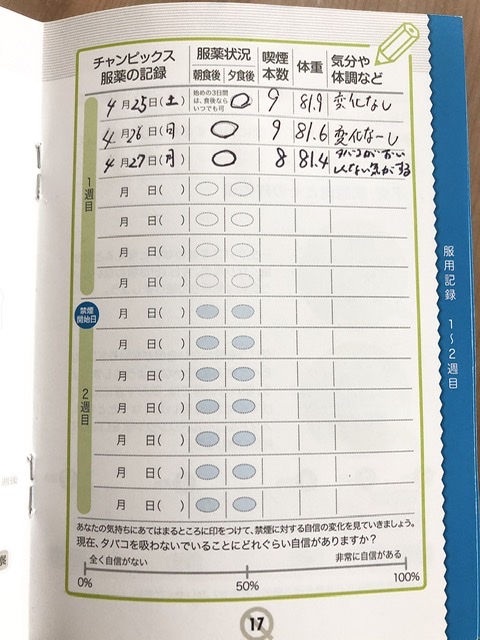 チャンピックス
服薬の記録
服薬状況
朝食後 夕食後
喫煙
本数
体重
気分や
体調など
4月25日(土) 始めの3日間は、食後ならいつでも可 9 81.9 変化なし
4月26日(日) 9 81.6 変化なーし
4月27日(月) 8 81.4 タバコがおいしくない気がする
月 日( )
月 日( )
月 日( )
月 日( )
1週目
禁煙
開始日
月 日( )
月 日( )
月 日( )
月 日( )
月 日( )
月 日( )
月 日( )
2週目
あなたの気持ちにあてはまるところに印をつけて、禁煙に対する自信の変化を見ていきましょう。
現在、タバコを吸わないでいることにどれぐらい自信がありますか?
全く自信がない 非常に自信がある
0% 50% 100%
17
服用記録 1~2週目
週後